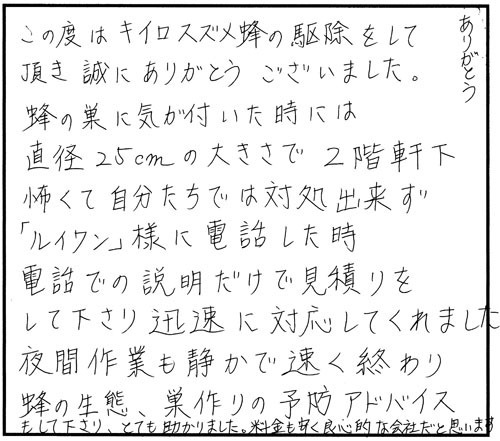 この度はキイロスズメ蜂の駆除をして
頂き誠にありがとうございました。
蜂の巣に気が付いた時には
直径25cmの大きさで2階軒下
怖くて自分たちでは対処出来ず
「ルイワン」様に電話した時
電話での説明だけで見積りを
して下さり迅速に対応してくれました
夜間作業も静かで速く終わり
蜂の生態、巣作りの予防アドバイス
もして下さり、とても助かりました。料金も安く良心的な会社だと思います
ありがとう